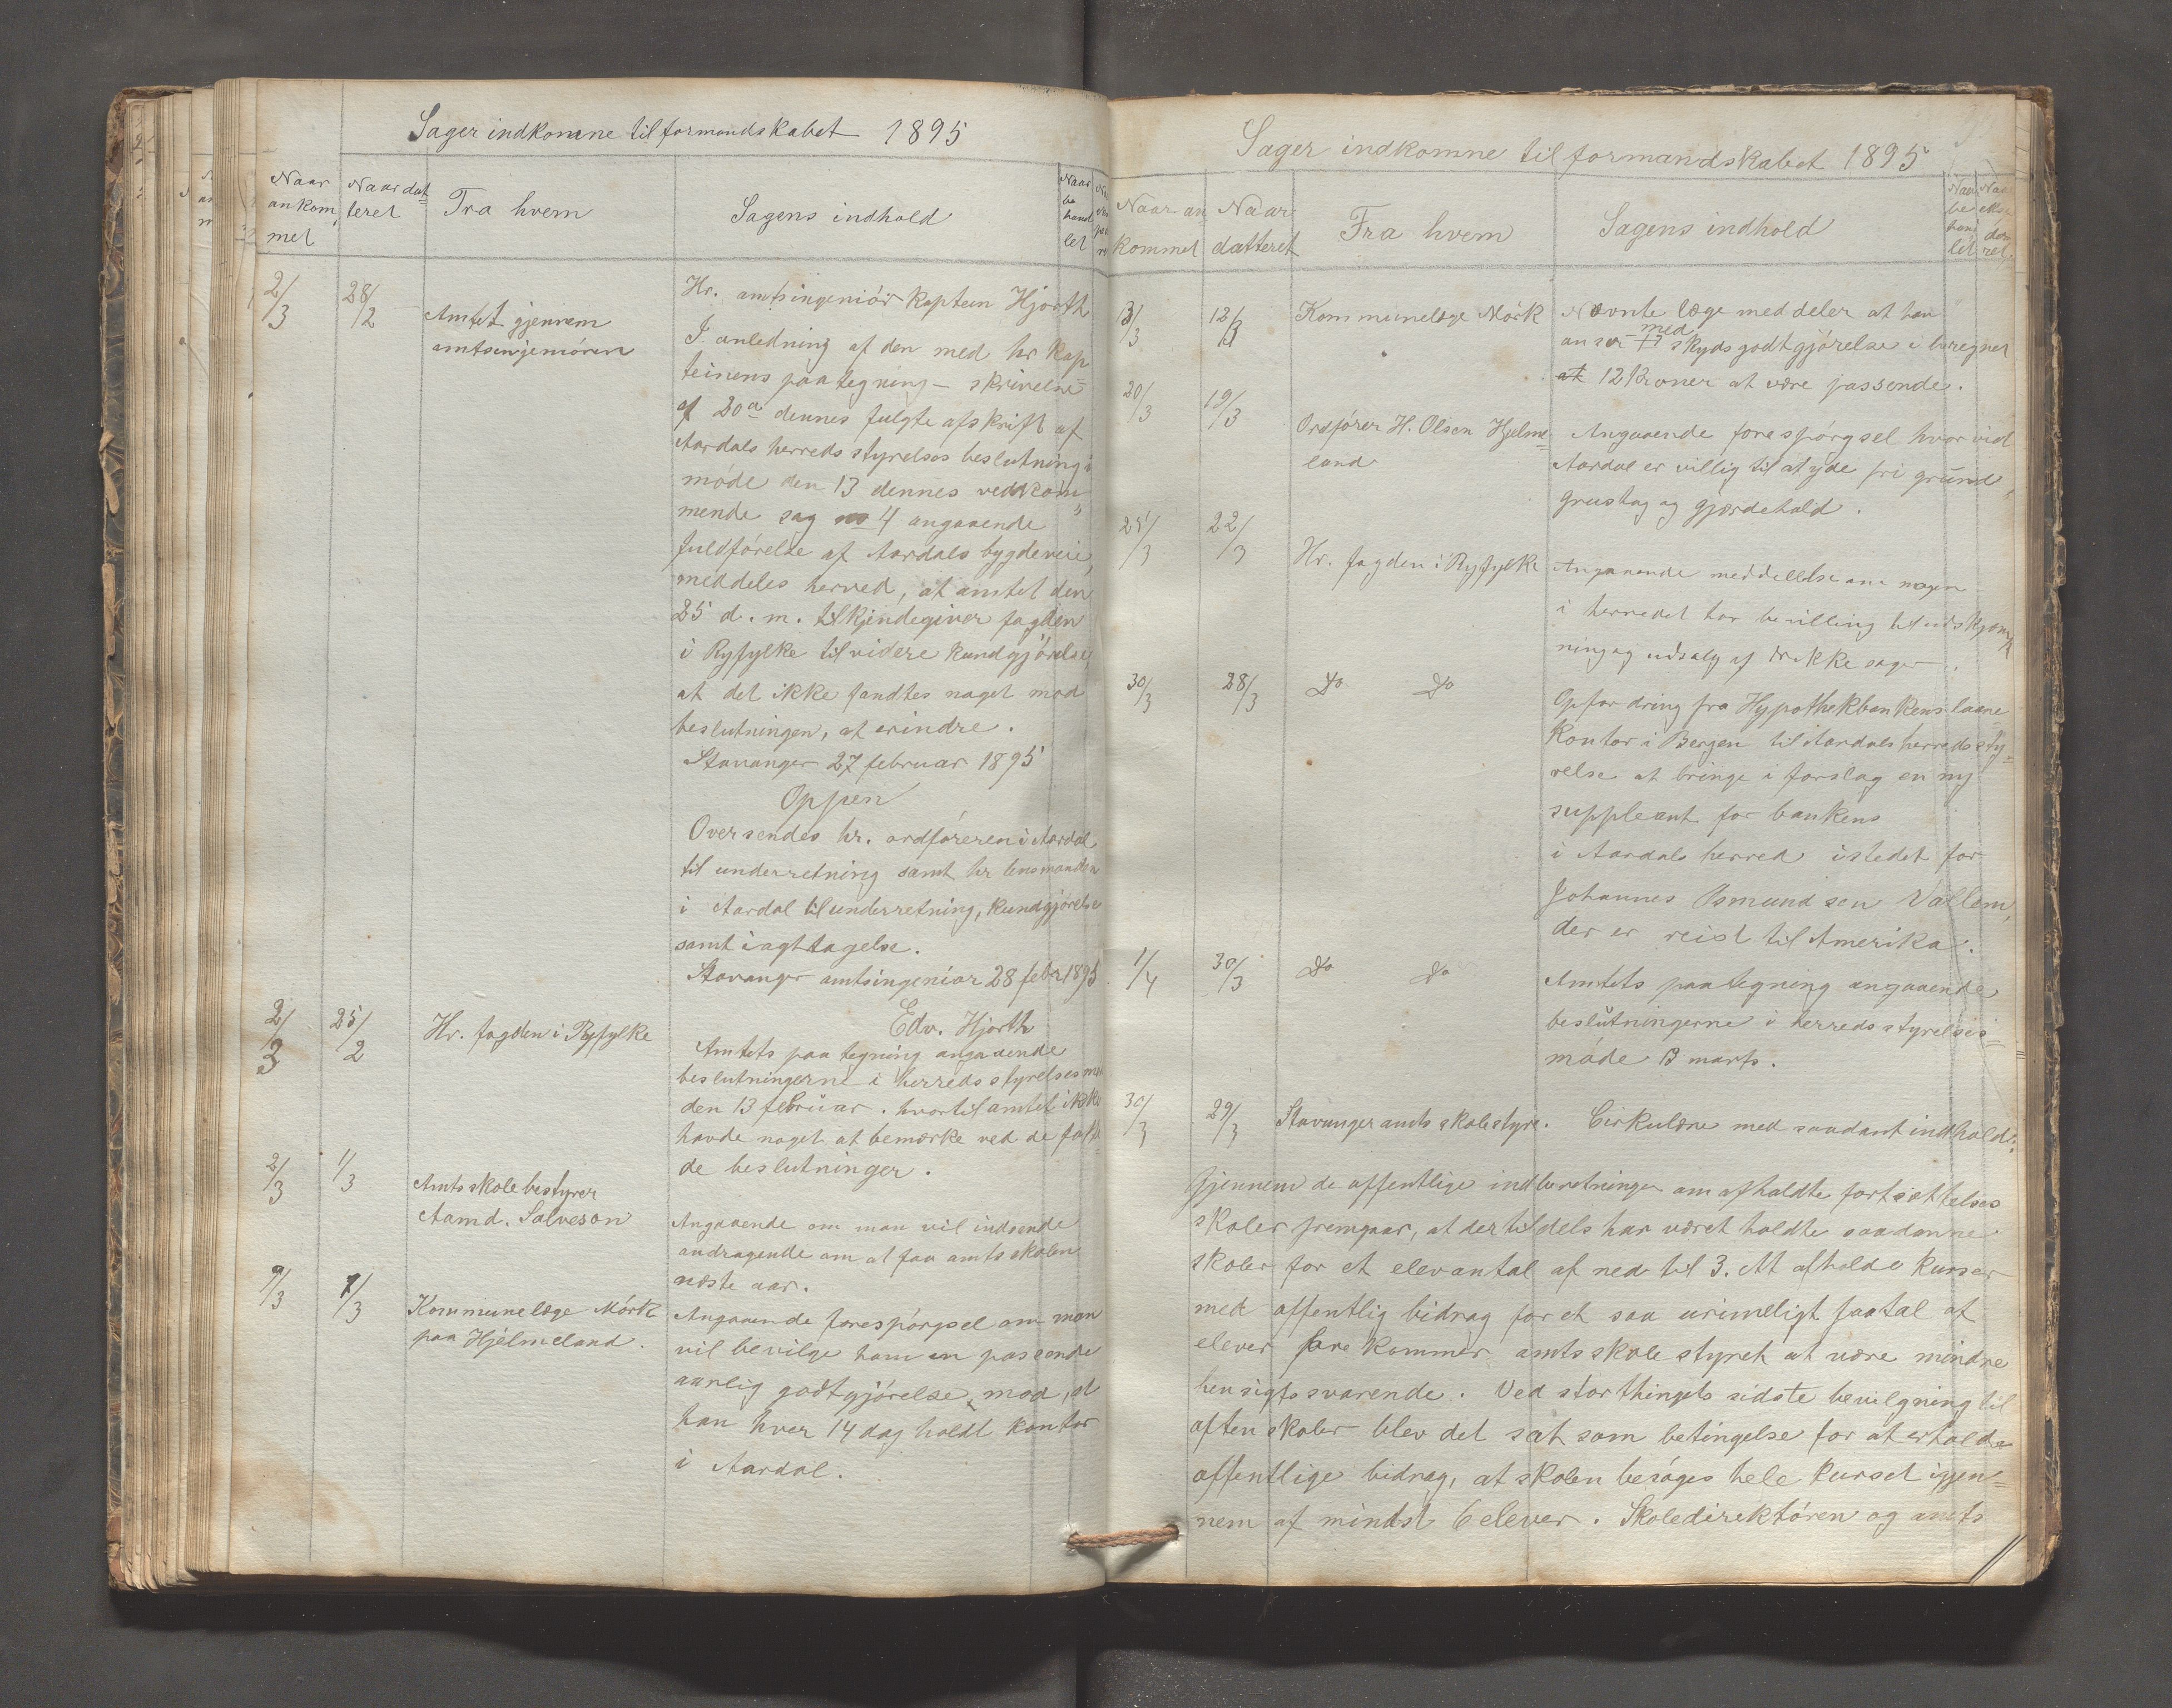 Sager indkomne til formandskabet 1895
Naar ankommet
Naar datteret
Fra hvem
Sagens indhold
Naar behandlet
2/3
28/2
Amtet gjennem
amtsingeniören
Hr. amtsingeniör kaptein Hjorth
I anledning af den med hr kap
teinens paategning – skrivelse
af 20de dennes fulgte afskrift af
Aardals herredsstyrelses beslutning i
möde den 13 dennes vedkom
mende sag no 4 angaaende
fuldförelse af Aardals bygdeveie,
meddeles herved, at amtet den
25 d. m. tilkjendegiver fogden
i Ryfylke til videre kundgjörelse
at det ikke fandtes noget mod
beslutningen, at erindre.
Stavanger 27 februar 1895
Oppen
Oversendes hr. ordföreren i Aardal
til underretning samt hr lensmanden
i Aardal til underretning, kundgjörelse
samt iagttagelse.
Stavanger amtsingeniör 28 febr 1895
Edv. Hjorth
2/3
25/2
Hr. fogden i Ryfylke
Amtets paategning angaaende
beslutningerne i herredsstyrelses
den 13 februar. hvortil amtet ikke
havde noget at bemærke ved de
de beslutninger.
2/3
1/3
Amtsskolebestyrer
Aamd. Salveson
Angaaende om man vil indsende
andragende om at faa amtsskolen
næste aar.
9/3
7/3
Kommunelæge Mörk
paa Hjelmeland.
Angaaende forespörgsel om man
vil bevilge ham en passende
aarlig godtgjörelse, mod, at
han hver 14 dag holdt kontor
i Aardal.
Sager indkomne til formandskabet 1895
Naar an
kommet
Naar
datteret
Fra hvem
Sagens indhold
Naar behandlet
Naar ekspederet
13/3
12/3
Kommunelæge Mörk
Nævnte læge meddeler at han
anser med skydsgodtgjörelse iberegnet
at 12 Kroner at være passende.
20/3
19/3
Ordförer H. Olsen Hjelme
land
Angaaende forespörgsel hvorvid
Aardal er villig til at yde fri grund,
grustag og gjærdehold.
25/3
22/3
Hr. fogden i Ryfylke
Angaaende meddellelse om nogen
i herredet har bevilling til udskjænk
ning og udsalg af drikkesager.
30/3
28/3
Do Do
Opfordring fra Hypothekbankens laane
kontor i Bergen til Aardals herredssty
relse at bringe i forslag en ny
suppleant for bankens
i Aardals herred istedet for
Johannes Osmundsen Vallem,
der er reist til Amerika.
1/4
30/3
Do Do
Amtets paategning angaaende
beslutningerne i herredsstyrelses=
möde 13 marts.
30/3
29/3
Stavanger amts skolestyre.
Cirkulære med saadant indhold:
Gjennem de offentlige indberetninger om afholdte fortsættelses
skoler fremgaar, at der tildels har været holdte saadanne
skoler for et elevantal af ned til 3. At afholde kurser
med offentlig bidrag for et saa urimeligt faatal af
elever forekommer amtsskolestyret at være mindre
hensigtssvarende. Ved storthingets sidste bevilgning til
aftenskoler blev det sat som betingelse for at erholde
offentlige bidrag, at skolen besöges hele kurset igjen=
nem af mindst 6 elever. Skoledirektören og amts